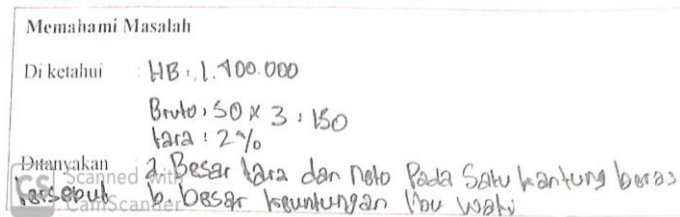 Memahami Masalah
Di ketahui : HB : 1.400.000
Bruto : 50 x 3 : 150
tara : 2%
Ditanyakan a. Besar tara dan neto Pada Satu kantung beras
tersebut b. besar keuntungan Ibu Wati
CS Scanned with
CamScanner